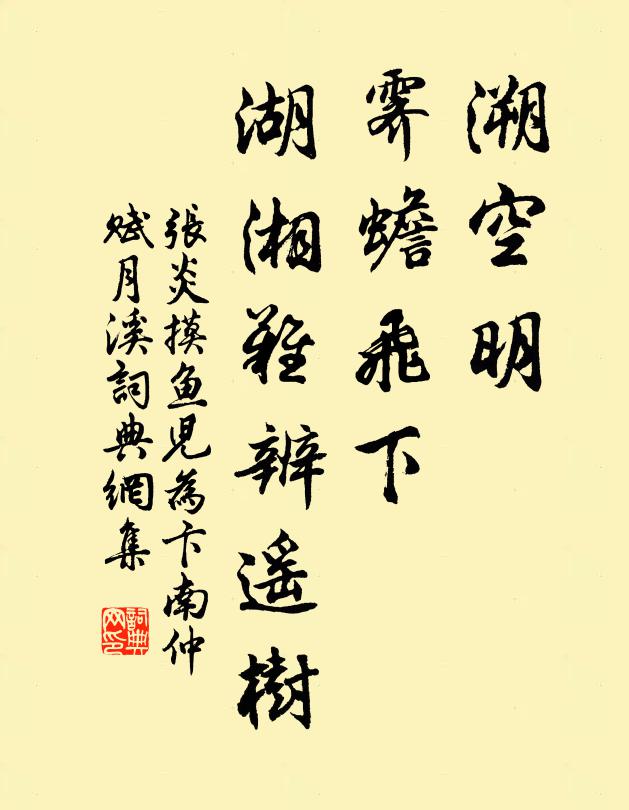 溯空明
霽蟾飛下
湖湘難辨遥樹
張炎摸魚兒為卞南仲
賦月溪詞典網集
詞典
网印